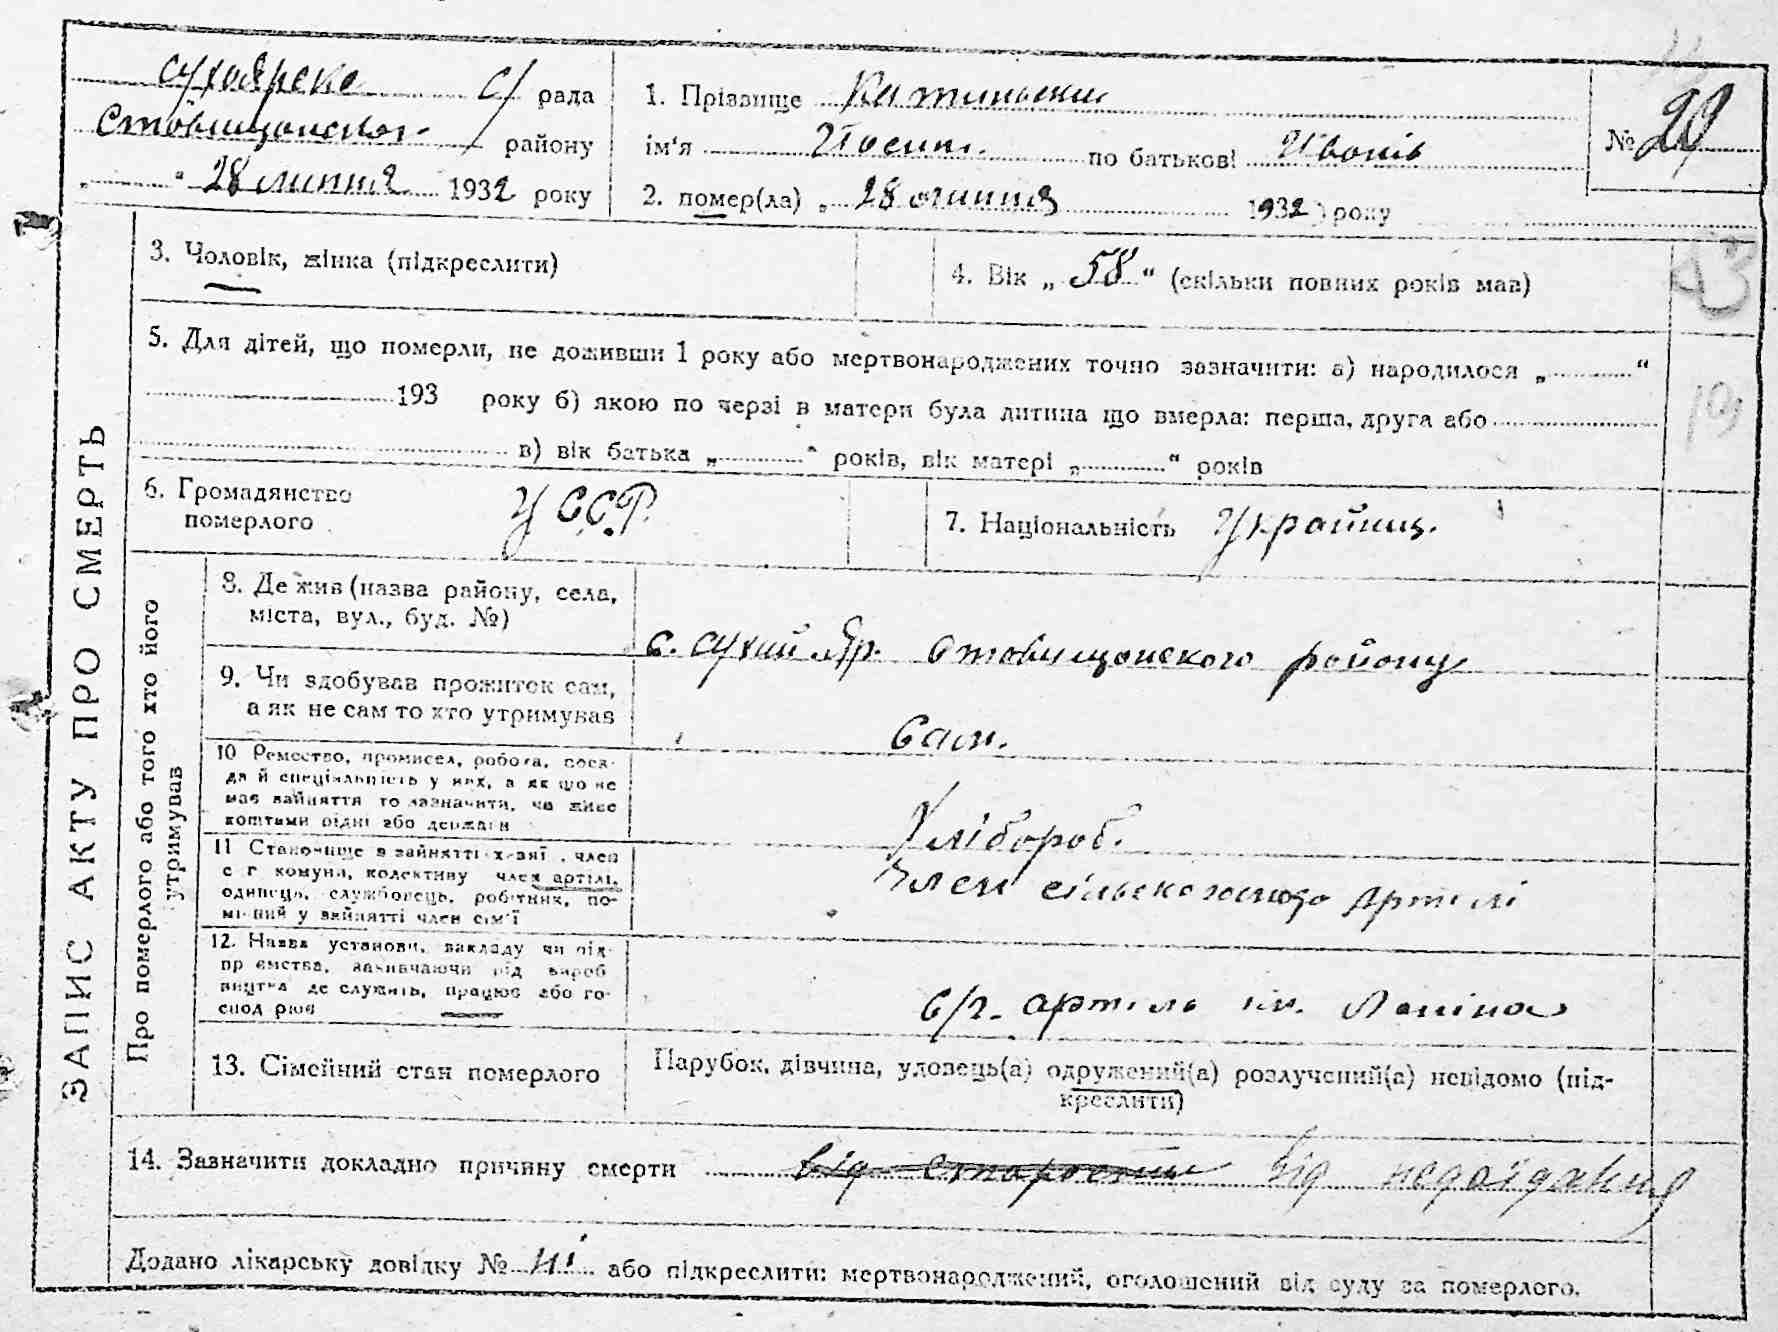 ЗАПИС АКТУ ПРО СМЕРТЬ
Сухоярска с/ рада
Ставищанског. району
„ “ 28 липня 1932 року
1. Прізвище
ім'я Йосип. по батькові Иванів
2. помер(ла) „ 28 липня 1932 року
№ 29
3. Чоловік, жінка (підкреслити)
4. Вік „ 58 “ (скільки повних років мав)
5. Для дітей, що померли, не доживши 1 року або мертвонароджених точно зазначити: а) народилося „ “
193 року б) якою по черзі в матери була дитина що вмерла: перша, друга або
в) вік батька „ “ років, вік матері „ “ років
6. Громадянство
померлого
УССР.
7. Національність Украйинц.
Про померлого або того хто його
утримував
8. Де жив (назва району, села,
міста, вул., буд. №)
с. Сухий Яр. Ставищанского району
9. Чи здобував прожиток сам,
а як не сам то хто утримував
Сам.
10 Ремество, промисел, робота, поса-
да й спеціяльність у них, а як що не
має зайняття то зазначити, чи живе
коштами рідні або держави
Хлібороб.
11 Становище в зайнятті член
с г комуни, колективу член артілі,
одинець, службовець, робітник, по-
мічний у зайнятті член сім'ї
Член артілі
12. Назва установи, закладу чи під-
приємства, зазначаючи від вироб
ництва де служить, працює або го-
спод рює
с/г. артіль ім. Леніна
13. Сімейний стан померлого
Парубок, дівчина, удовець(а) одружений(а) розлучений(а) невідомо (під-
креслити)
14. Зазначити докладно причину смерти від старости від недоїдания
Додано лікарську довідку № ні або підкреслити: мертвонароджений, оголошений від суду за померлого.